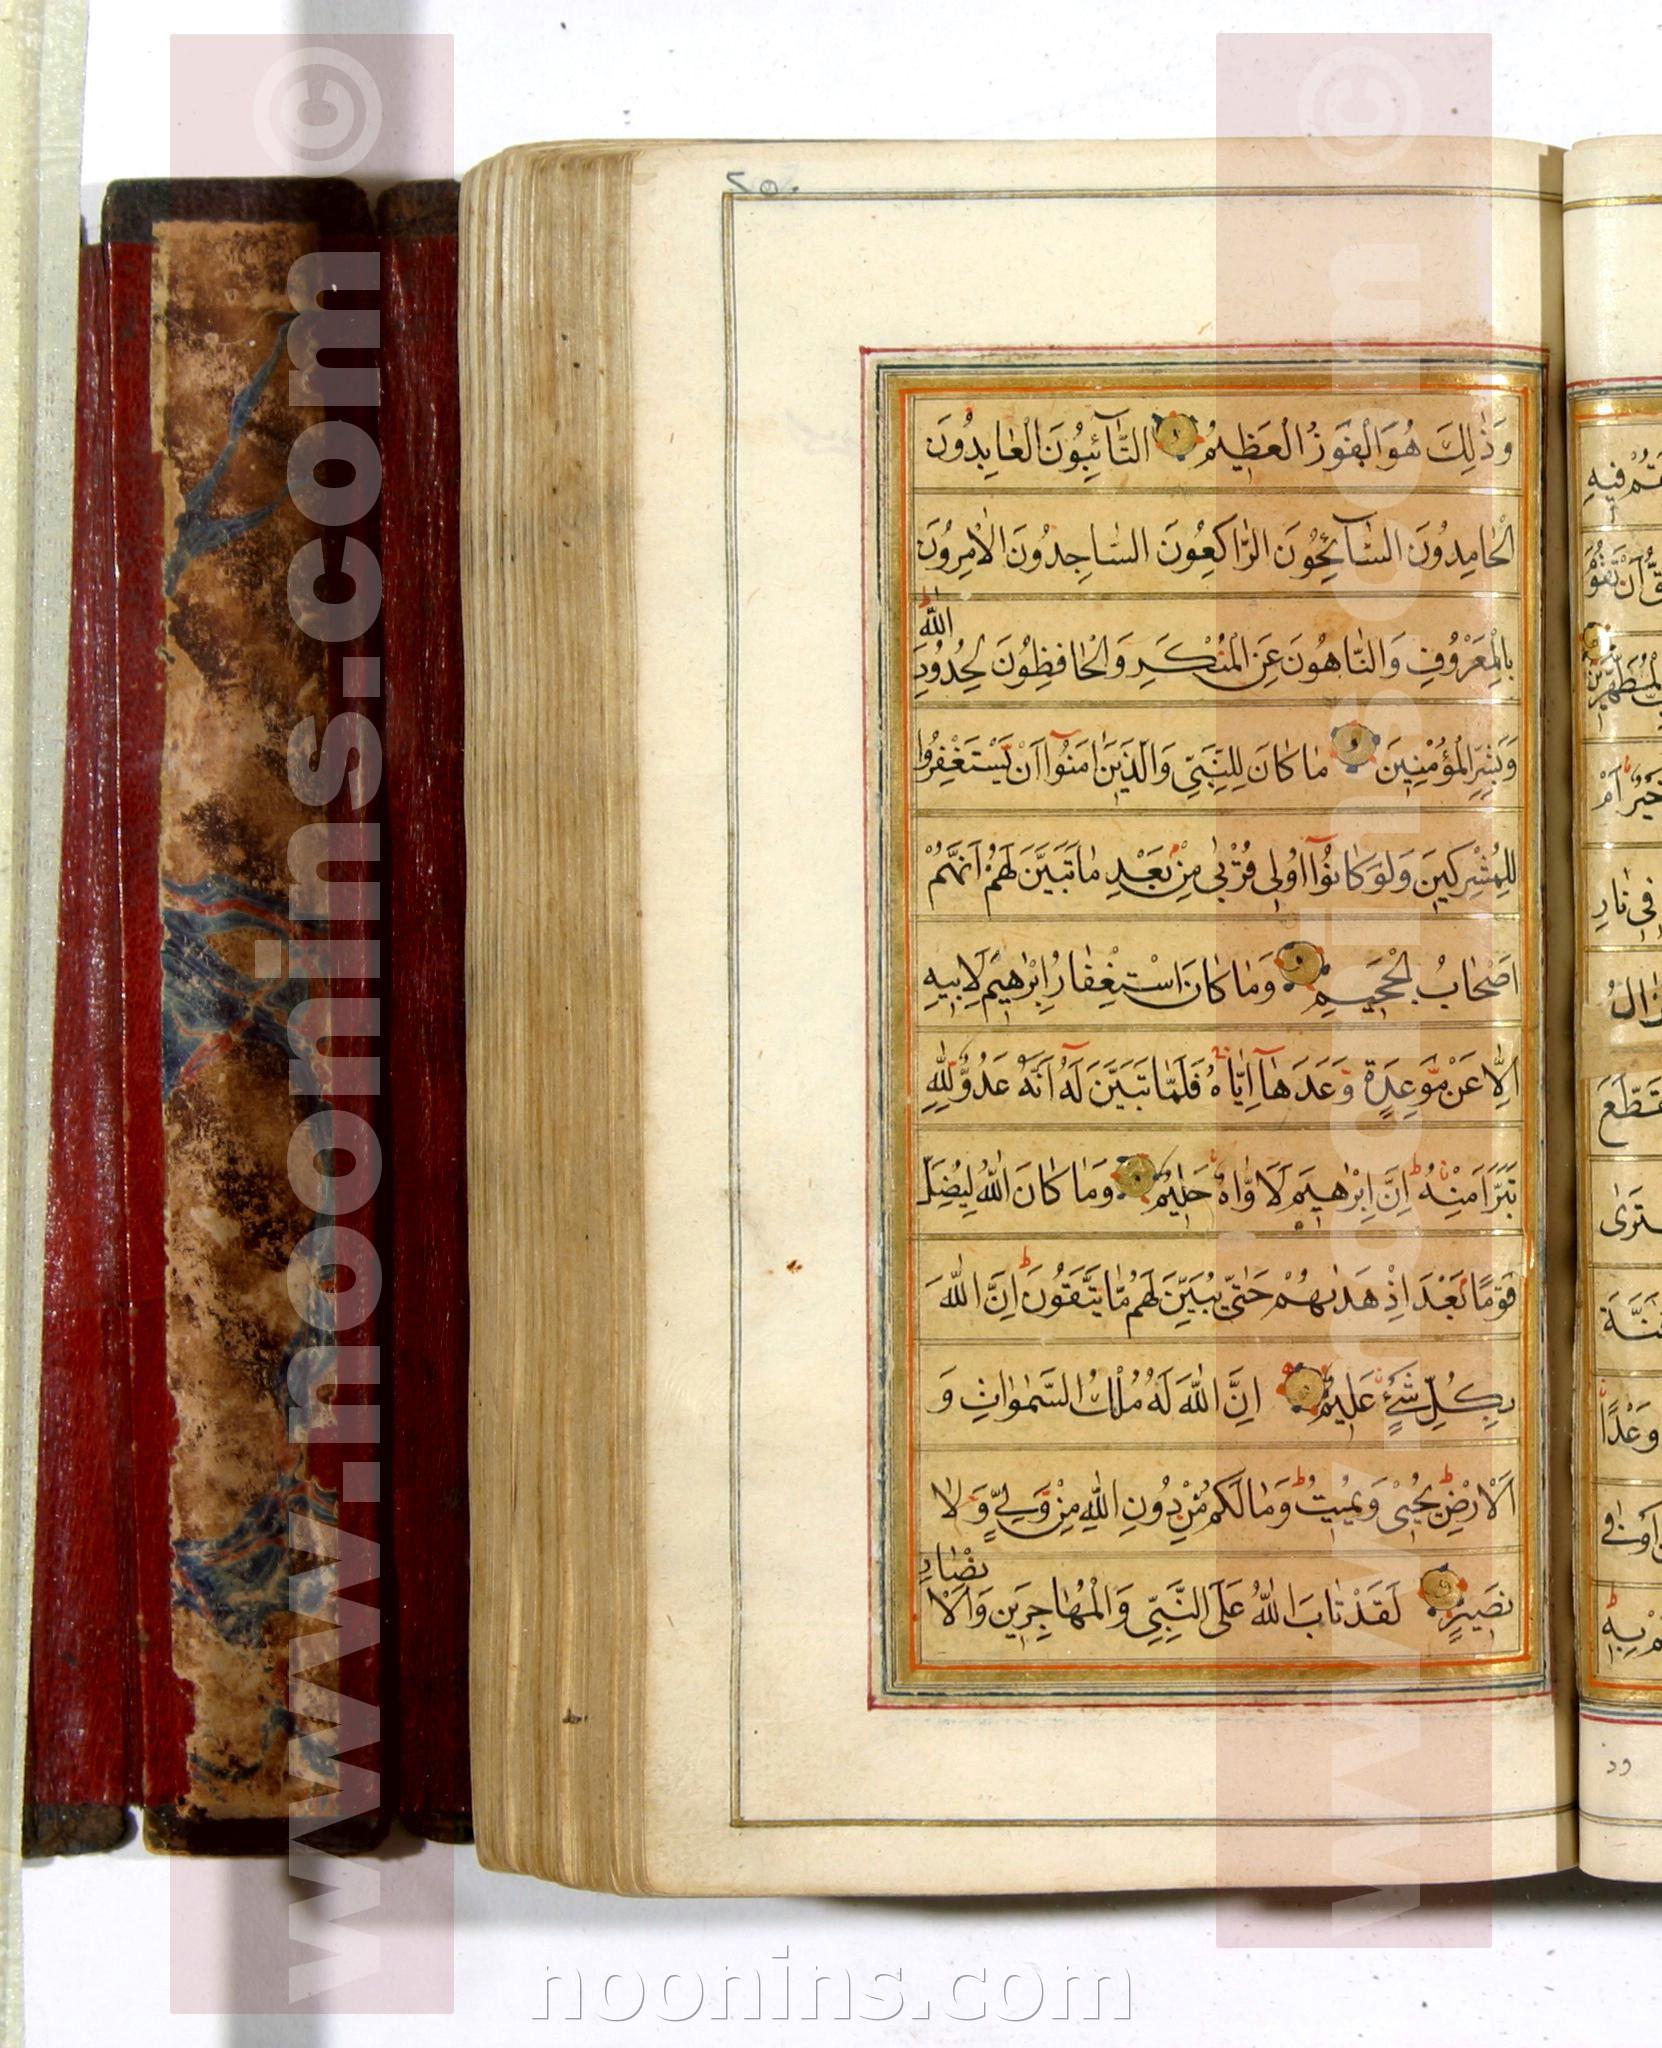 ۲۵۰
وَذٰلِكَ هُوَ الْفَوْزُ الْعَظِيمُ التَّآئِبُونَ الْعَابِدُونَ
الْحَامِدُونَ السَّآئِحُونَ الرَّاكِعُونَ السَّاجِدُونَ الْاٰمِرُونَ
بِالْمَعْرُوفِ وَالنَّاهُونَ عَنِ الْمُنْكَرِ وَالْحَافِظُونَ لِحُدُودِ اللّٰهِ
وَبَشِّرِ الْمُؤْمِنِينَ مَا كَانَ لِلنَّبِيِّ وَالَّذِينَ اٰمَنُوٓا اَنْ يَسْتَغْفِرُوا
لِلْمُشْرِكِينَ وَلَوْ كَانُوٓا اُولِى قُرْبٰى مِنْ بَعْدِ مَا تَبَيَّنَ لَهُمْ اَنَّهُمْ
اَصْحَابُ الْجَحِيمِ وَمَا كَانَ اسْتِغْفَارُ اِبْرٰهِيمَ لِاَبِيهِ
اِلَّا عَنْ مَوْعِدَةٍ وَعَدَهَآ اِيَّاهُ فَلَمَّا تَبَيَّنَ لَهُٓ اَنَّهُ عَدُوٌّ لِلّٰهِ
تَبَرَّاَ مِنْهُ اِنَّ اِبْرٰهِيمَ لَاَوَّاهٌ حَلِيمٌ وَمَا كَانَ اللّٰهُ لِيُضِلَّ
قَوْمًا بَعْدَ اِذْ هَدٰىهُمْ حَتّٰى يُبَيِّنَ لَهُمْ مَا يَتَّقُونَ اِنَّ اللّٰهَ
بِكُلِّ شَىْءٍ عَلِيمٌ اِنَّ اللّٰهَ لَهُ مُلْكُ السَّمٰوَاتِ وَ
الْاَرْضِ يُحْيِى وَيُمِيتُ وَمَا لَكُمْ مِنْ دُونِ اللّٰهِ مِنْ وَلِيٍّ وَلَا
نَصِيرٍ لَقَدْ تَابَ اللّٰهُ عَلَى النَّبِيِّ وَالْمُهَاجِرِينَ وَالْاَنْصَارِ
www.noonins.com ©
www.noonins.com ©
noonins.com